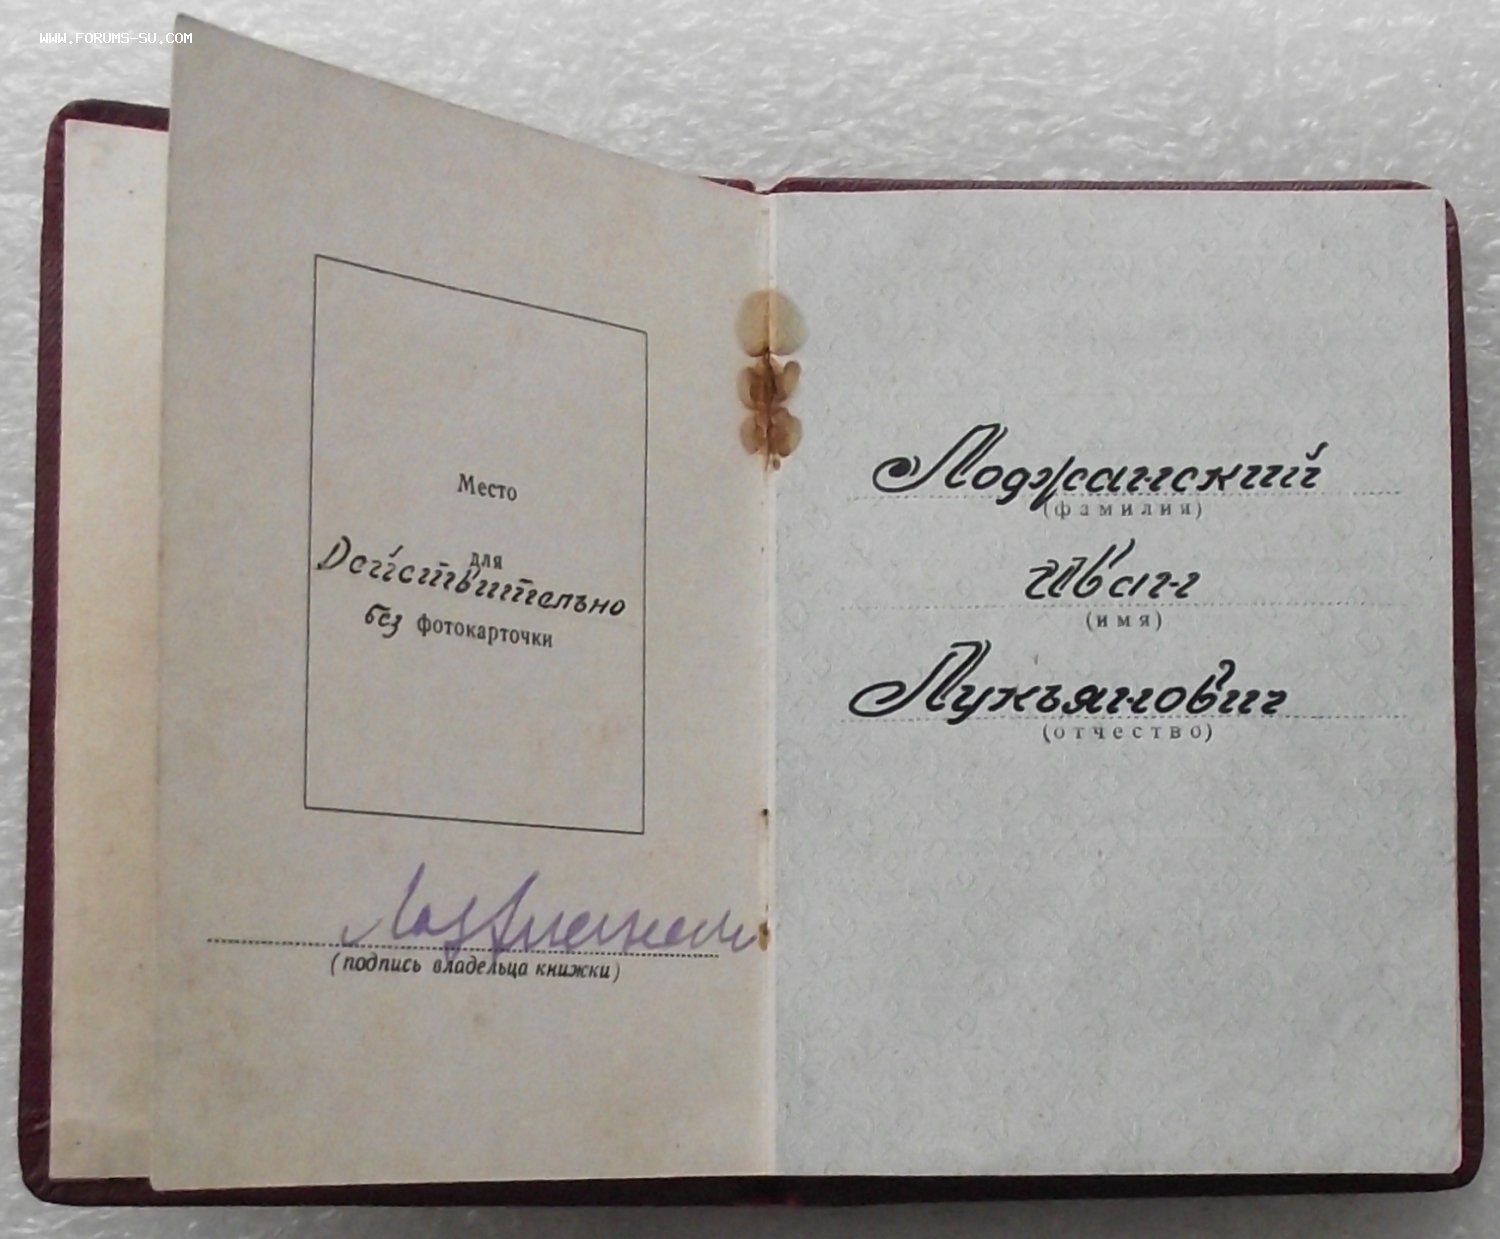 WWW.FORUMS-SU.COM
Место
для
Действительно
без фотокарточки
(подпись владельца книжки)
Лоджанский
(фамилия)
Иван
(имя)
Лукьянович
(отчество)